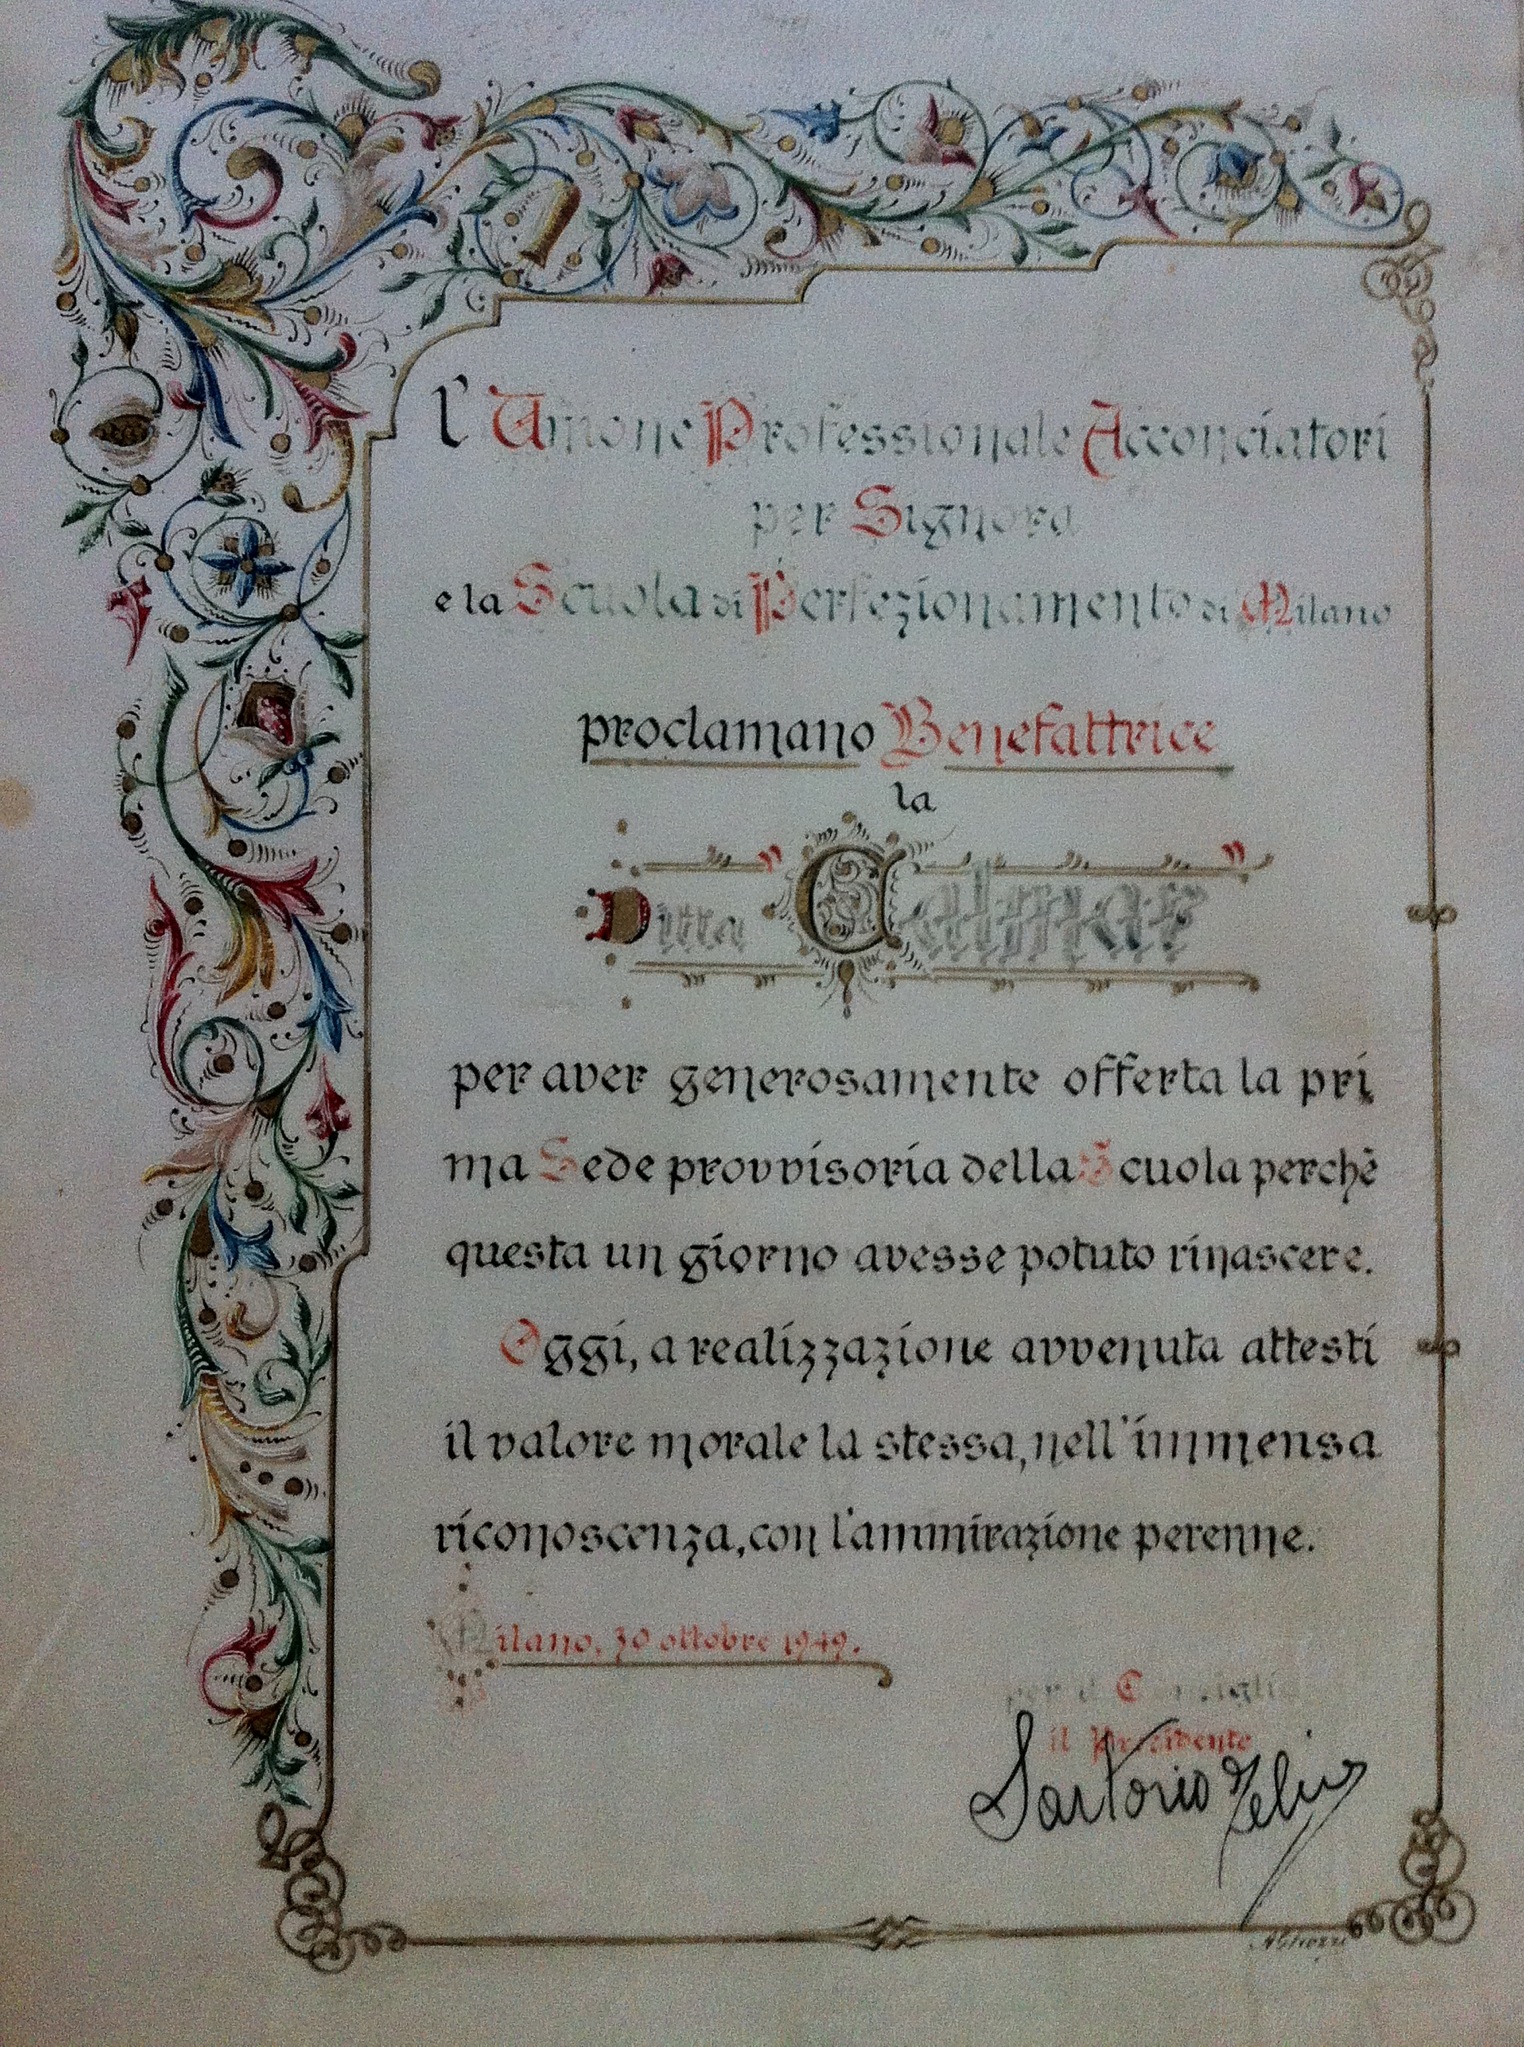 l'Unione Professionale Acconciatori
per Signora
e la Scuola di Perfezionamento di Milano
proclamano Benefattrice
la
Ditta
per aver generosamente offerta la pri
ma Sede provvisoria della Scuola perchè
questa un giorno avesse potuto rinascere.
Oggi, a realizzazione avvenuta attesti
il valore morale la stessa, nell'immensa
riconoscenza, con l'ammirazione perenne.
Milano, 30 ottobre 1949.
per il Consiglio
il Presidente
Sartorio